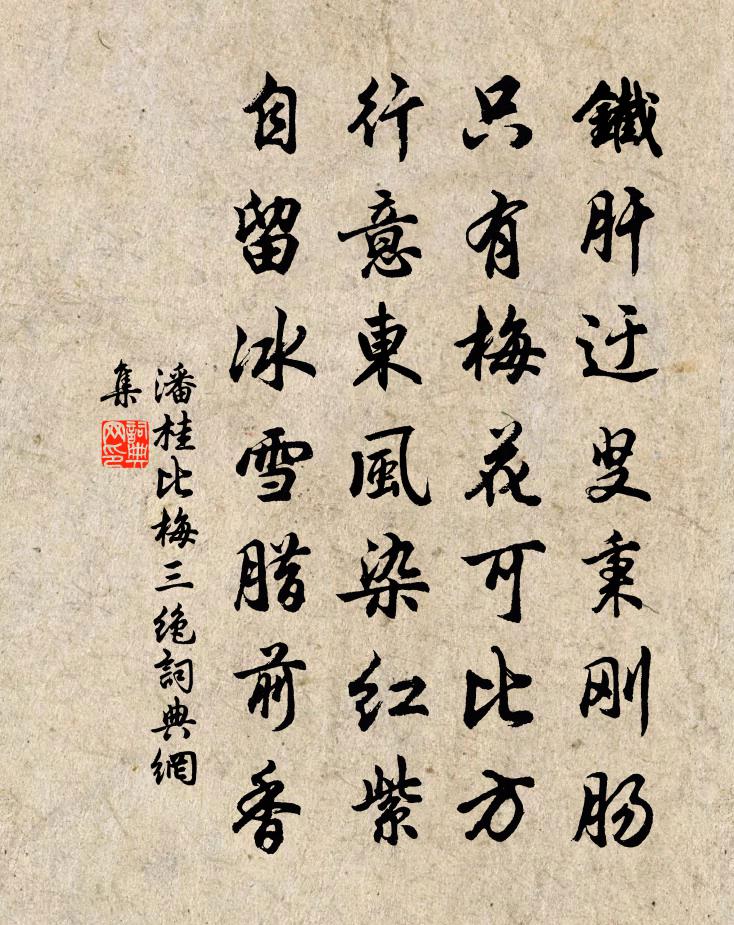 鐵肝迂叟秉刚肠
只有梅花可比方
行意東風染红紫
自留冰雪腊前香
潘桂比梅三绝詞典網
集
詞典网印